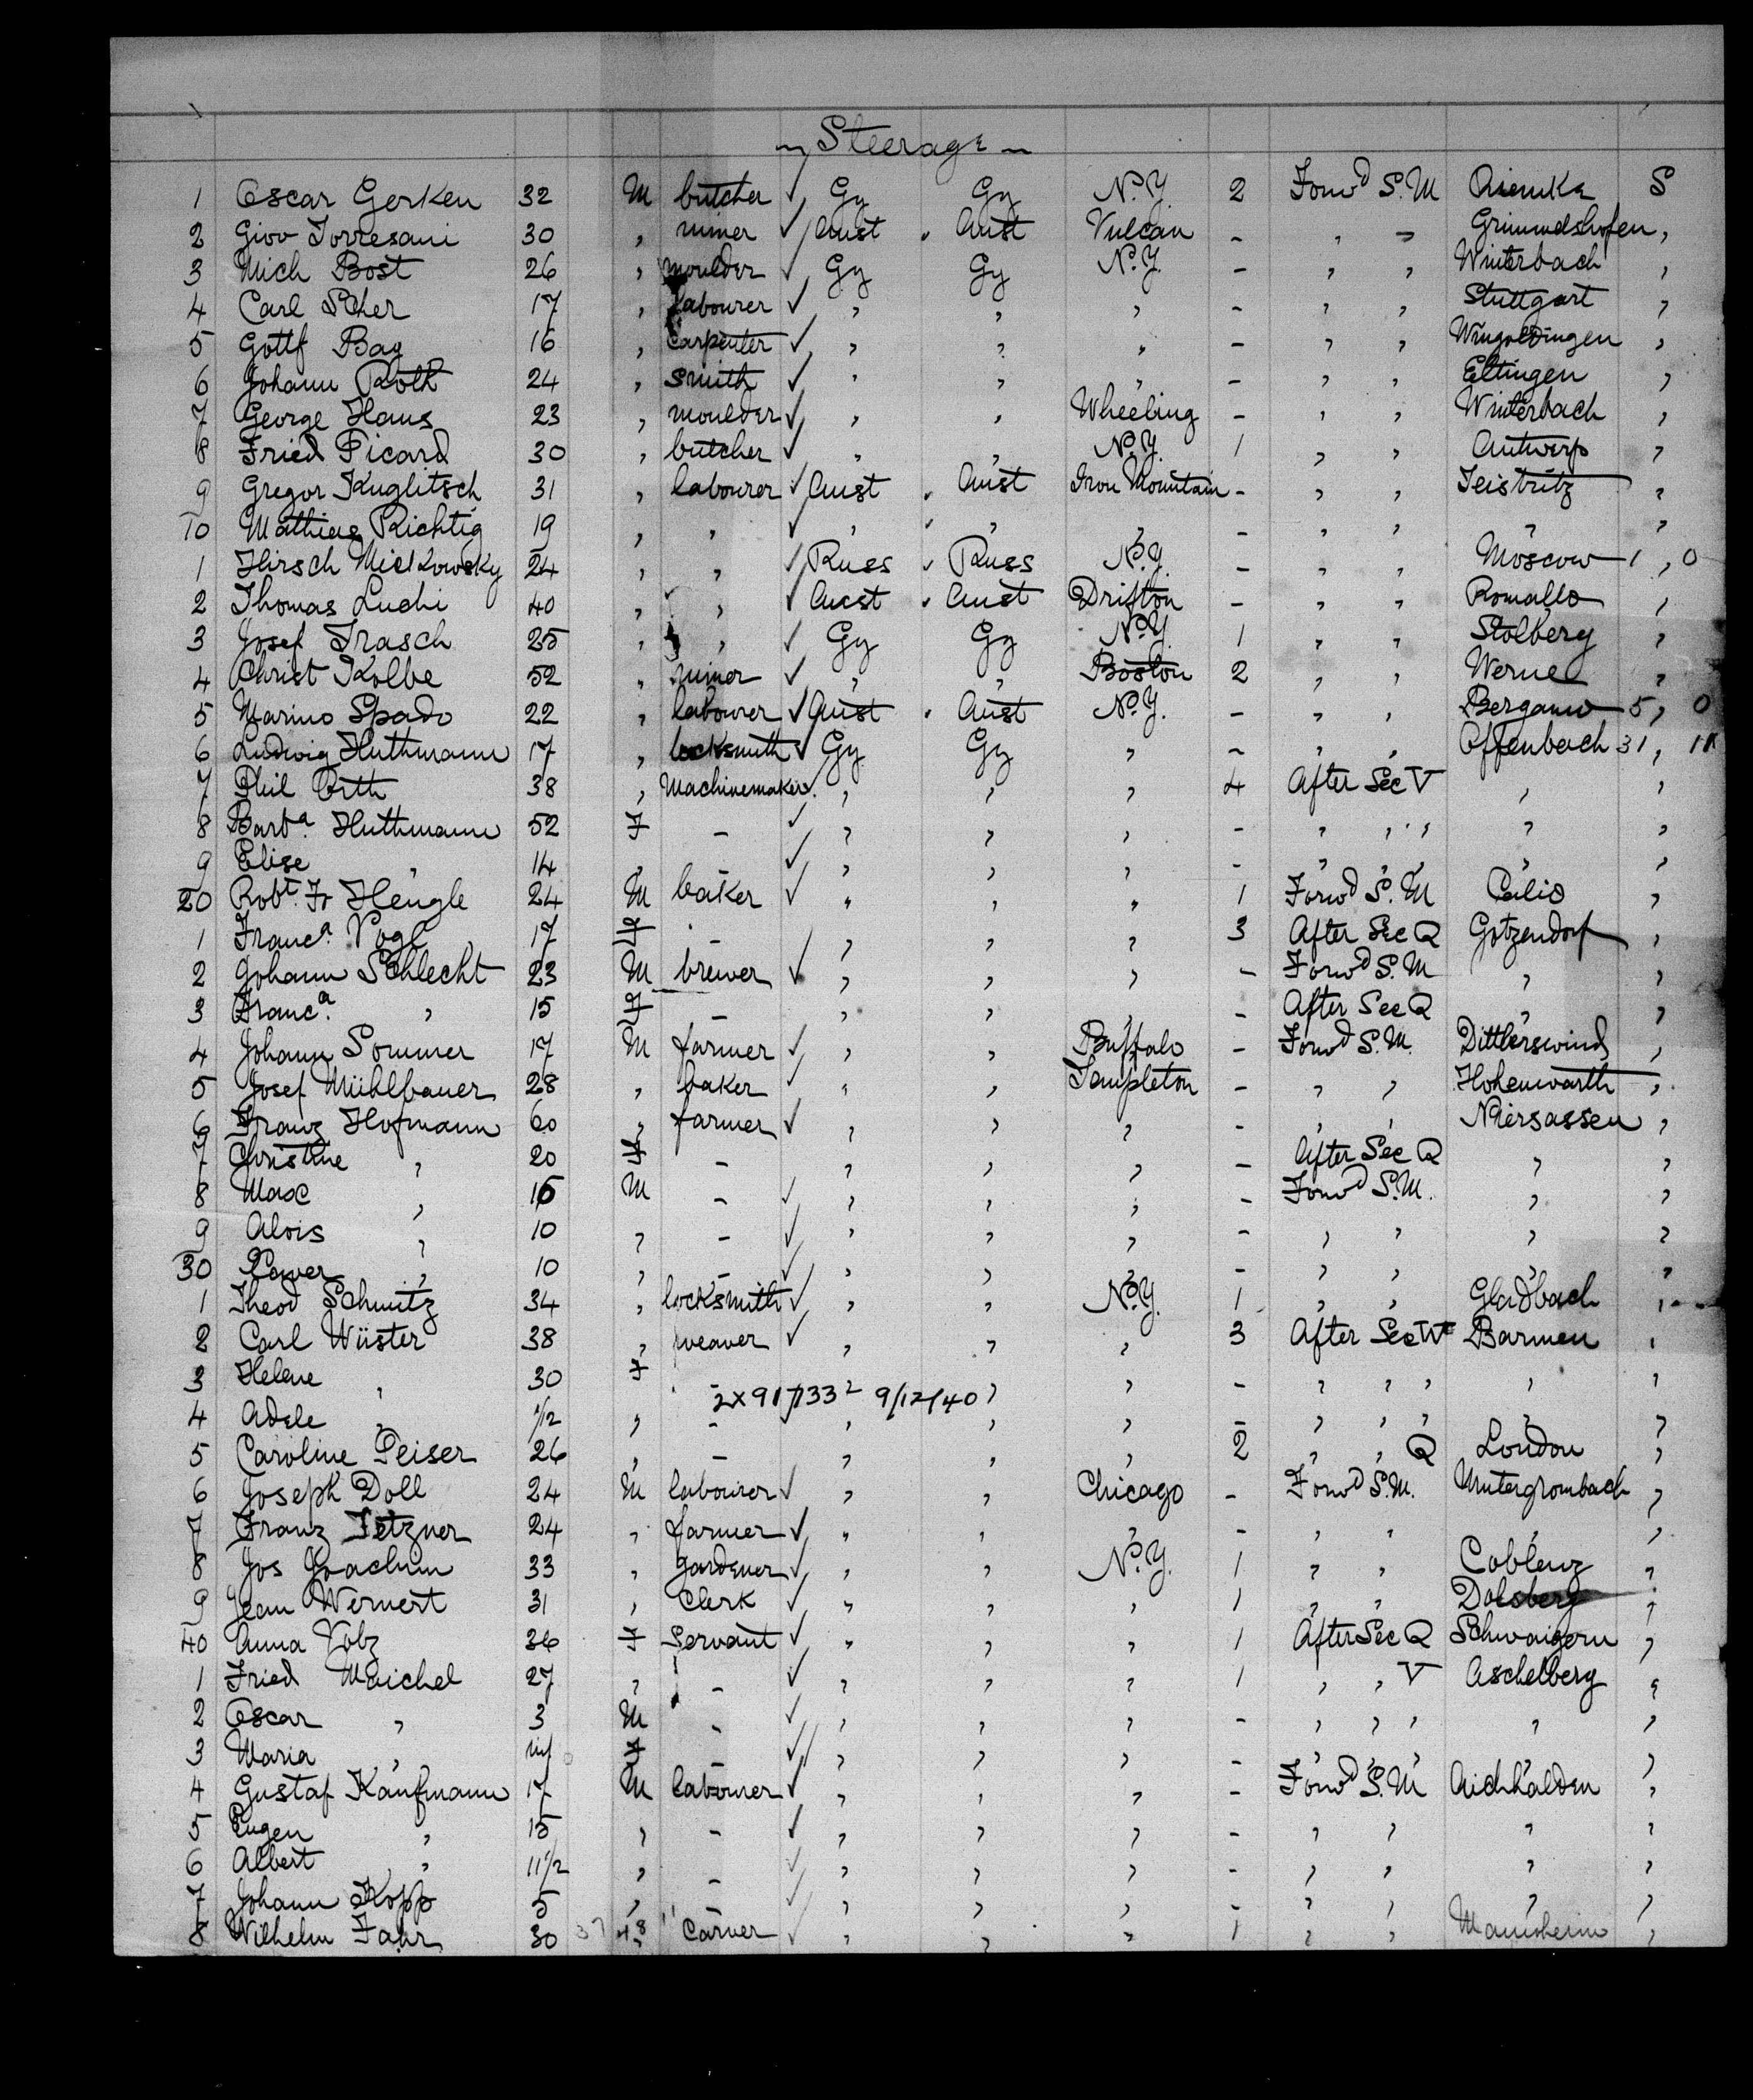 ~ Steerage ~
1 Oscar Gerken 32 M butcher ✓ Gy Gy N.Y. 2 Forwd S.M S
2 Giov Torresani 30 , miner ✓ Aust . Aust Vulcan - , ,
3 Mich Bost 26 , moulder ✓ Gy Gy N.Y. - , , Winterbach ,
4 Carl Scher 17 , labourer ✓ , , , - , , Stuttgart ,
5 Gottf Bay 16 , carpenter ✓ , , , - , , ,
6 Johann Roth 24 , smith ✓ , , , - , , Eltingen ,
7 George Haus 23 , moulder ✓ , , Wheeling - , , Winterbach ,
8 Fried Picard 30 , butcher ✓ , , N.Y. 1 , , Antwerp ,
9 Gregor Kuglitsch 31 , labourer ✓ Aust , Aust Iron Mountain - , , Feistritz ,
10 Mathias Richtig 19 , , ✓ , , , - , , , ,
1 Hirsch Mickowsky 24 , , ✓ Russ , Russ N.Y. - , , Moscow 1 , 0
2 Thomas Luchi 40 , , ✓ Aust , Aust Drifton - , , Romallo ,
3 Josef Trasch 25 , , ✓ Gy Gy N.Y. 1 , , Stolberg ,
4 Christ Kolbe 52 , miner ✓ , , Boston 2 , , Werne ,
5 Marino Spado 22 , labourer ✓ Aust , Aust N.Y. - , , Bergamo 5 , 0
6 Ludwig Huthmann 17 , locksmith ✓ Gy Gy , - , , Offenbach 31 ,
7 Phil Orth 38 , Machinemaker , , , 4 After Sec V , ,
8 Barba. Huthmann 52 F - ✓ , , , - , , , , ,
9 Elise , 14 , - ✓ , , , - , , , , ,
20 Robt. Fr Hengle 24 M baker ✓ , , , 1 Forwd S.M Calio ,
1 Franca. Vogl 17 F - , , , 3 After Sec Q Gotzendorf ,
2 Johann Schlecht 23 M brewer ✓ , , , - Forwd S.M , ,
3 Franca. , 15 F - , , , - After Sec Q , ,
4 Johann Sommer 17 M farmer ✓ , , Buffalo - Forwd S.M. Dittlerswind ,
5 Josef Mühlbauer 28 , baker ✓ , , Templeton - , , Hohenwarth ,
6 Franz Hofmann 60 , farmer ✓ , , , - , , Niersassen ,
7 Christine , 20 F - , , , - After Sec Q , ,
8 Max , 15 M - ✓ , , , - Forwd S.M. , ,
9 Alois , 10 , - ✓ , , , - , , , ,
30 Xaver , 10 , - ✓ , , , - , , , ,
1 Theod Schmitz 34 , locksmith ✓ , , N.Y. 1 , , Gladbach ,
2 Carl Wüster 38 , weaver ✓ , , , 3 After Sec W Barmen ,
3 Helene , 30 F 2X917133 2 9/12/40 , , - , , , , ,
4 Adele , 1/12 , - , , , - , , , , ,
5 Caroline Peiser 26 , - , , , 2 , , Q London ,
6 Joseph Doll 24 M labourer ✓ , , Chicago - Forwd S.M. Untergrombach ,
7 Franz Tetzner 24 , farmer ✓ , , , - , , , ,
8 Jos Joachim 33 , gardener ✓ , , N.Y. 1 , , Coblenz ,
9 Jean Wernert 31 , Clerk ✓ , , , 1 , , Dolsberg ,
40 Anna Volz 36 F Servant ✓ , , , 1 After Sec Q Schwaigern ,
1 Fried Maichel 27 , - ✓ , , , 1 , , V Aschelberg ,
2 Oscar , 3 M - ✓ , , , - , , , , ,
3 Maria , inf F - ✓ , , , - , , , , ,
4 Gustaf Kaufmann 17 M labourer ✓ , , , - Forwd S.M Aichhalden ,
5 Eugen , 15 , - ✓ , , , - , , , ,
6 Albert , 11 1/2 , - ✓ , , , - , , , ,
7 Johann Kopp 5 , - ✓ , , , - , , , ,
8 Wilhelm Fahr 30 37 48 11 Carver ✓ , , , 1 , , Mannheim ,